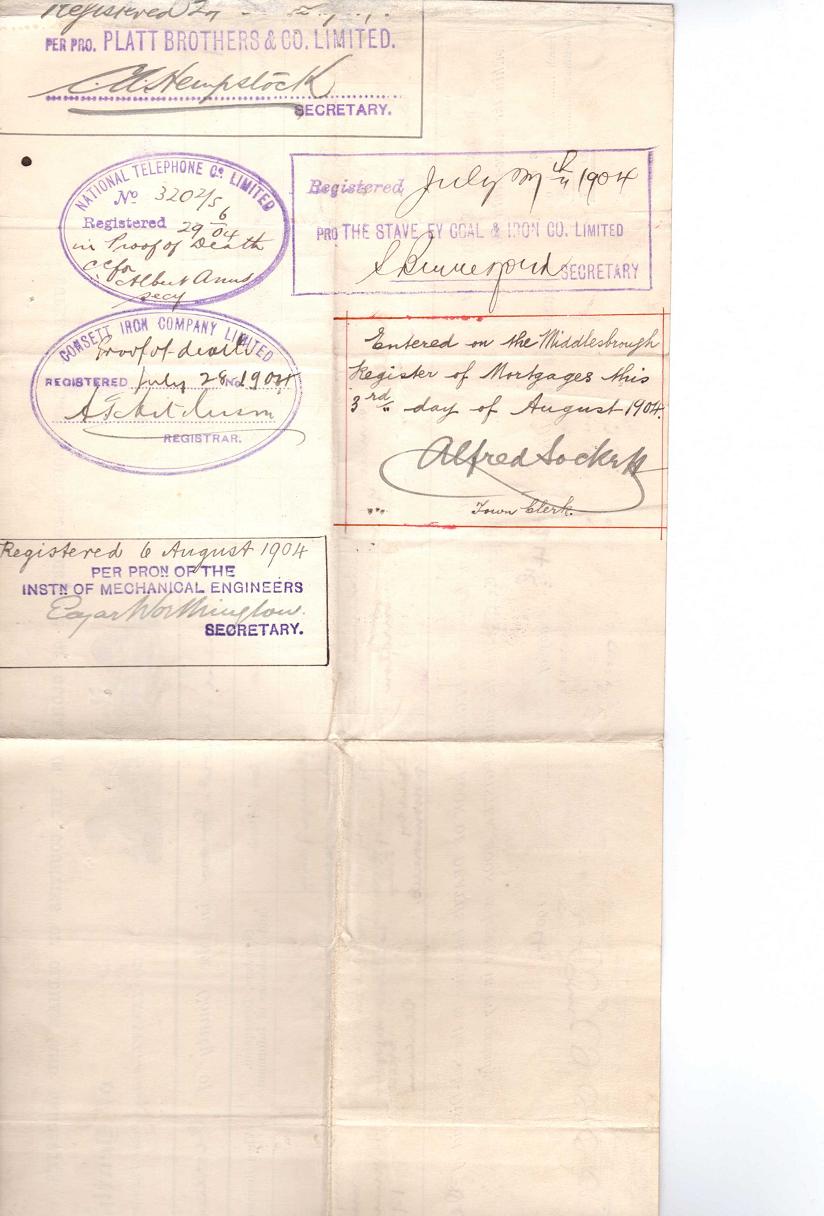 Registered
PER PRO. PLATT BROTHERS & CO. LIMITED.
C. H. Hempstock
SECRETARY.
NATIONAL TELEPHONE Co. LIMITED
No 3202/5
Registered 29 6 04
in Proof of Death
of
Albert Anns
secy
Registered July 1904
PRO THE STAVE EY COAL & IRON CO. LIMITED
SECRETARY
CONSETT IRON COMPANY LIMITED
Proof of death
REGISTERED July 28 No. 1904
REGISTRAR.
Entered on the Middlesbrough
Register of Mortgages this
3rd day of August 1904.
Alfred Sockett
Town Clerk.
Registered 6 August 1904
PER PRON OF THE
INSTN OF MECHANICAL ENGINEERS
Edgar Worthington.
SECRETARY.